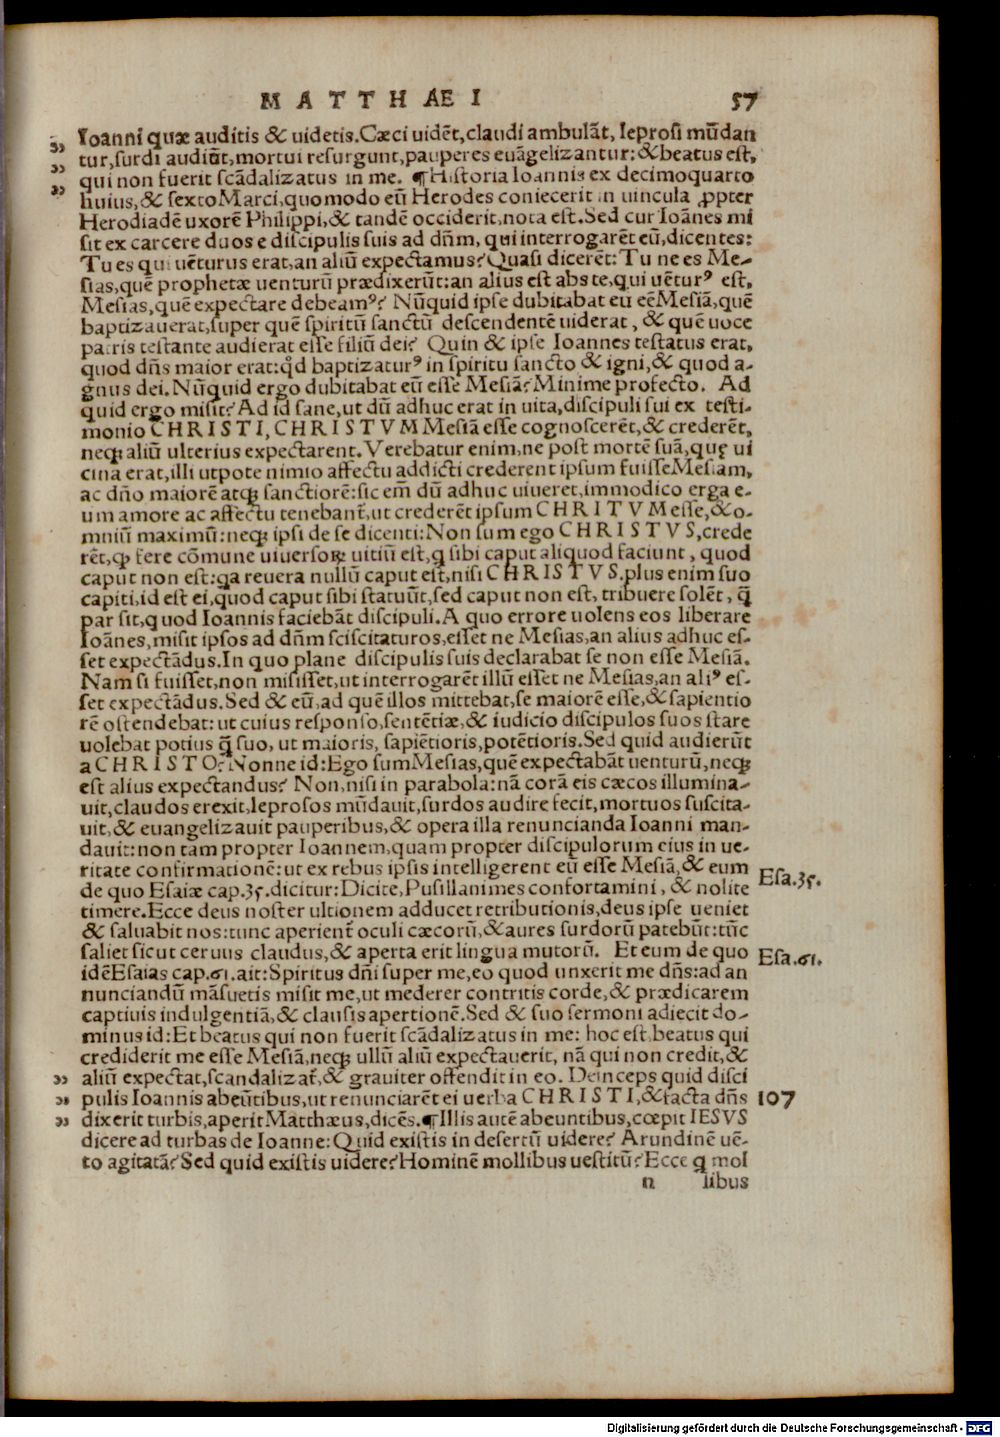 MATTHÆI 57
Ioanni quæ auditis & uidetis. Cæci uidēt, claudi ambulāt, leprosi mūdan
tur, surdi audiūt, mortui resurgunt, pauperes euāgelizantur: & beatus est,
qui non fuerit scādalizatus in me. ¶Historia Ioannis ex decimoquarto
huius, & sexto Marci, quomodo eū Herodes coniecerit in uincula ꝓpter
Herodiadē uxorē Philippi, & tandē occiderit, nota est. Sed cur Ioānes mi
sit ex carcere duos e discipulis suis ad dn̄m, qui interrogarēt eū, dicentes:
Tu es qui uēturus erat, an aliū expectamus? Quasi dicerēt: Tu ne es Me-
sias, quē prophetæ uenturū prædixerūt: an alius est abs te, qui uēturꝰ est,
Mesias, quē expectare debeamꝰ? Nūquid ipse dubitabat eū eē Mesiā, quē
baptizauerat, super quē spiritū sanctū descendentē uiderat, & quē uoce
patris testante audierat esse filiū dei? Quin & ipse Ioannes testatus erat,
quod dn̄s maior erat: qd̓ baptizaturꝰ in spiritu sancto & igni, & quod a-
gnus dei. Nūquid ergo dubitabat eū esse Mesiā? Minime profecto. Ad
quid ergo misit? Ad id sane, ut dū adhuc erat in uita, discipuli sui ex testi-
monio CHRISTI, CHRISTVM Mesiā esse cognoscerēt, & crederēt,
neqꝫ aliū ulterius expectarent. Verebatur enim, ne post mortē suā, quę ui
cina erat, illi utpote nimio affectu addicti crederent ipsum fuisse Mesiam,
ac dn̄o maiorē atqꝫ sanctiorē: sic em̄ dū adhuc uiueret, immodico erga e-
um amore ac affectu tenebant̃, ut crederēt ipsum CHRITVM esse, & o-
mniū maximū: neqꝫ ipsi de se dicenti: Non sum ego CHRISTVS, crede
rēt, ꝙ fere cōmune uiuersoꝝ uitiū est, q sibi caput aliquod faciunt, quod
caput non est: qa reuera nullū caput est, nisi CHRISTVS. plus enim suo
capiti, id est ei, quod caput sibi statuūt, sed caput non est, tribuere solēt, q̄
par sit, quod Ioannis faciebāt discipuli. A quo errore uolens eos liberare
Ioānes, misit ipsos ad dn̄m sciscitaturos, esset ne Mesias, an alius adhuc es-
set expectādus. In quo plane discipulis suis declarabat se non esse Mesiā.
Nam si fuisset, non misisset, ut interrogarēt illū esset ne Mesias, an aliꝰ es-
set expectādus. Sed & eū, ad quē illos mittebat, se maiorē esse, & sapientio
rē ostendebat: ut cuius responso, sentētiæ, & iudicio discipulos suos stare
uolebat potius q̄ suo, ut maioris, sapiētioris, potētioris. Sed quid audierūt
a CHRISTO? Nonne id: Ego sum Mesias, quē expectabāt uenturū, neqꝫ
est alius expectandus? Non, nisi in parabola: nā corā eis cæcos illumina-
uit, claudos erexit, leprosos mūdauit, surdos audire fecit, mortuos suscita-
uit, & euangelizauit pauperibus, & opera illa renuncianda Ioanni man-
dauit: non tam propter Ioannem, quam propter discipulorum eius in ue-
ritate confirmationē: ut ex rebus ipsis intelligerent eū esse Mesiā, & eum
de quo Esaiæ cap. 35. dicitur: Dicite, Pusillanimes confortamini, & nolite
Esa. 35.
timere. Ecce deus noster ultionem adducet retributionis, deus ipse ueniet
& saluabit nos: tunc aperient̃ oculi cæcorū, & aures surdorū patebūt: tūc
saliet sicut ceruus claudus, & aperta erit lingua mutorū. Et eum de quo
idē Esaias cap. 61. ait: Spiritus dn̄i super me, eo quod unxerit me dn̄s: ad an
Esa. 61.
nunciandū māsuetis misit me, ut mederer contritis corde, & prædicarem
captiuis indulgentiā, & clausis apertionē. Sed & suo sermoni adiecit do-
minus id: Et beatus qui non fuerit scādalizatus in me: hoc est, beatus qui
crediderit me esse Mesiā, neqꝫ ullū aliū expectauerit, nā qui non credit, &
aliū expectat, scandalizat̃, & grauiter offendit in eo. Deinceps quid disci
pulis Ioannis abeūtibus, ut renunciarēt ei uerba CHRISTI, & facta dn̄s 107
dixerit turbis, aperit Matthæus, dicēs. ¶Illis autē abeuntibus, cœpit IESVS
dicere ad turbas de Ioanne: Quid existis in desertū uidere? Arundinē uē-
to agitatā? Sed quid existis uidere? Hominē mollibus uestitū? Ecce q mol
n libus
Digitalisierung gefördert durch die Deutsche Forschungsgemeinschaft - DFG